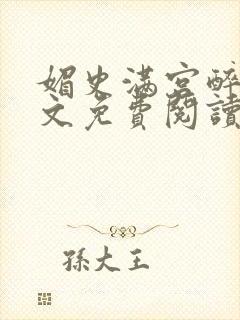 媚史满宫醉
文免费阅读
孫大王